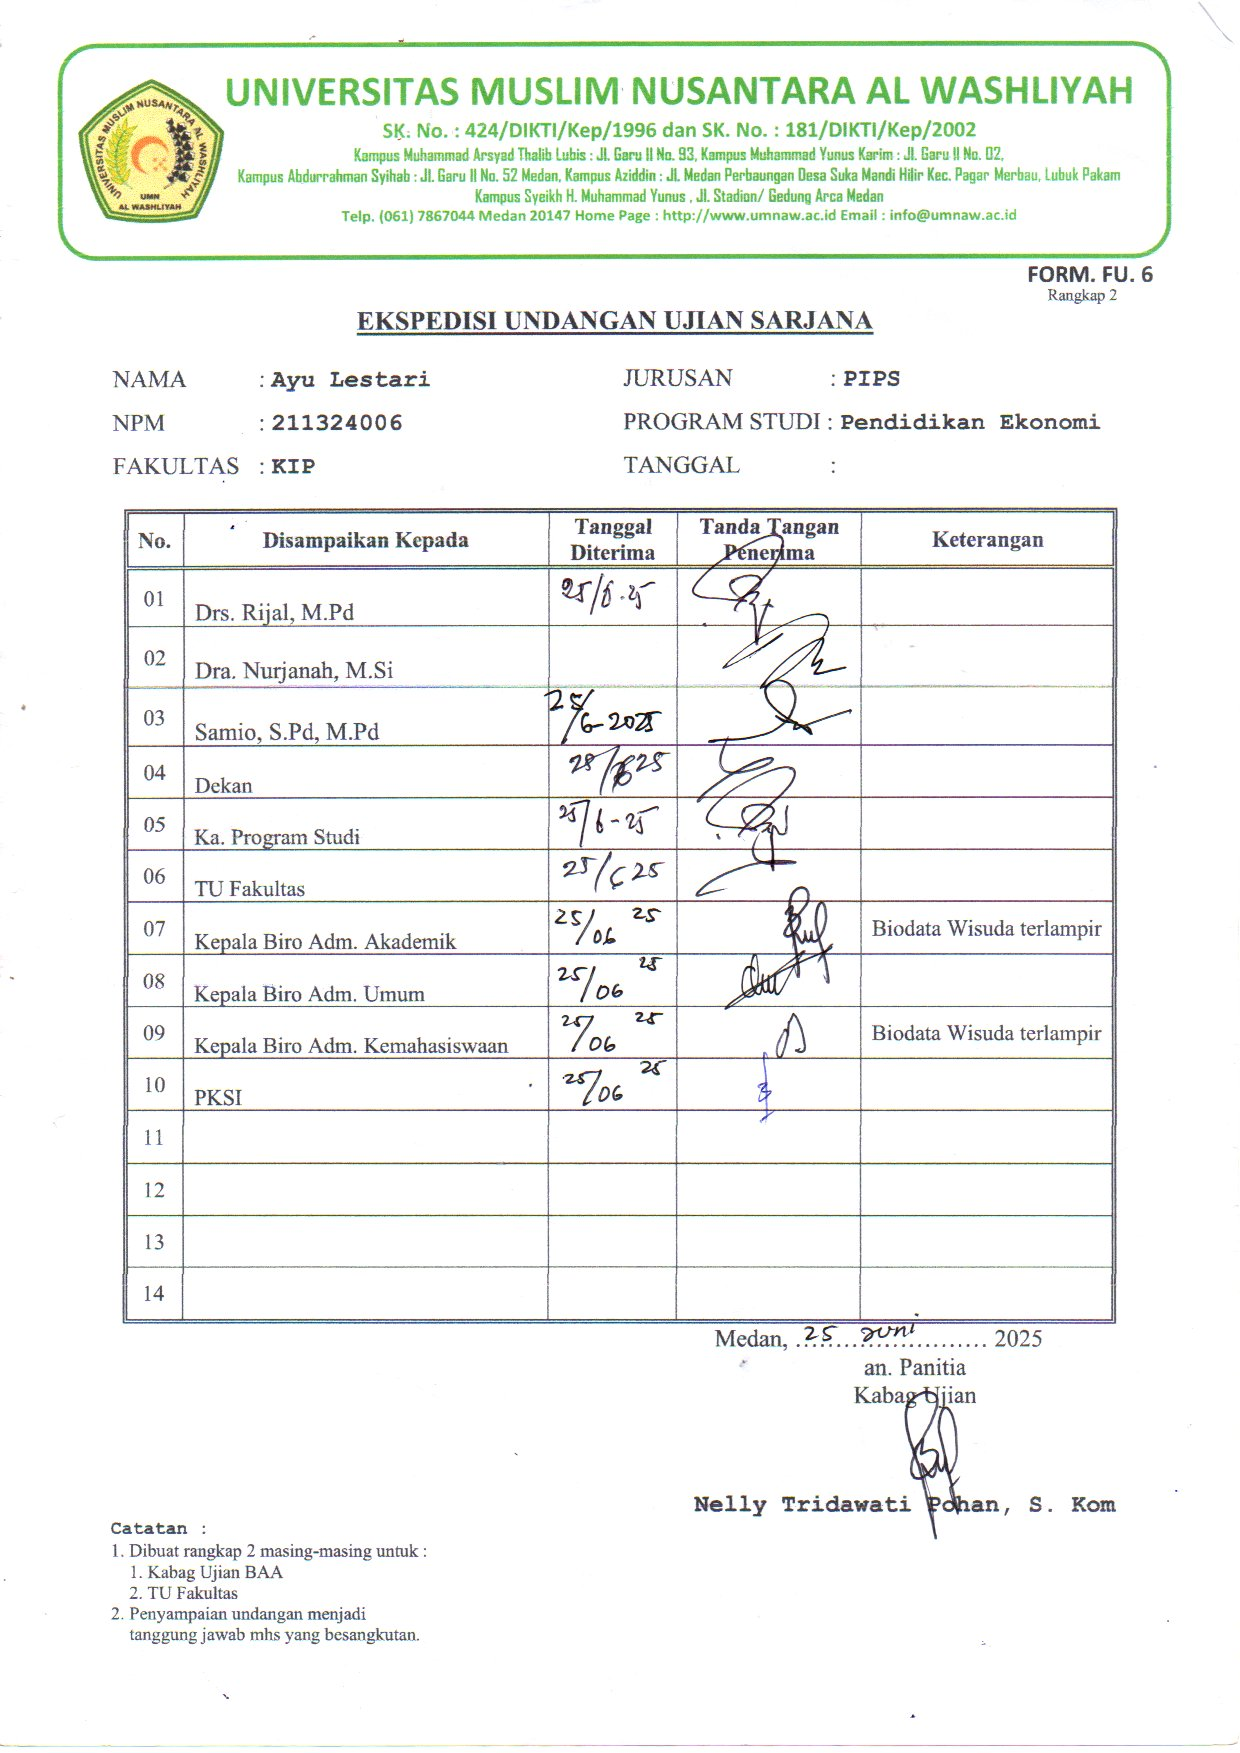 UNIVERSITAS MUSLIM NUSANTARA AL WASHLIYAH
SK. No. : 424/DIKTI/Kep/1996 dan SK. No. : 181/DIKTI/Kep/2002
Kampus Muhammad Arsyad Thalib Lubis : Jl. Garu II No. 93, Kampus Muhammad Yunus Karim : Jl. Garu II No. 02,
Kampus Abdurrahman Syihab : Jl. Garu II No. 52 Medan, Kampus Aziddin : Jl. Medan Perbaungan Desa Suka Mandi Hilir Kec. Pagar Merbau, Lubuk Pakam
Kampus Syeikh H. Muhammad Yunus , Jl. Stadion/ Gedung Arca Medan
Telp. (061) 7867044 Medan 20147 Home Page : http://www.umnaw.ac.id Email : info@umnaw.ac.id
UNIVERSITAS MUSLIM NUSANTARA AL WASHLIYAH
UMN
AL WASHLIYAH
FORM. FU. 6
Rangkap 2
EKSPEDISI UNDANGAN UJIAN SARJANA
NAMA : Ayu Lestari JURUSAN : PIPS
NPM : 211324006 PROGRAM STUDI : Pendidikan Ekonomi
FAKULTAS : KIP TANGGAL :
No. Disampaikan Kepada Tanggal Diterima Tanda Tangan Penerima Keterangan
01 Drs. Rijal, M.Pd 25/6-25
02 Dra. Nurjanah, M.Si
03 Samio, S.Pd, M.Pd 25/6-2025
04 Dekan 25/6 25
05 Ka. Program Studi 25/6-25
06 TU Fakultas 25/6 25
07 Kepala Biro Adm. Akademik 25/06 25 Biodata Wisuda terlampir
08 Kepala Biro Adm. Umum 25/06 25
09 Kepala Biro Adm. Kemahasiswaan 25/06 25 Biodata Wisuda terlampir
10 PKSI 25/06 25
11
12
13
14
Medan, 25 Juni 2025
an. Panitia
Kabag Ujian
Nelly Tridawati Pohan, S. Kom
Catatan :
1. Dibuat rangkap 2 masing-masing untuk :
1. Kabag Ujian BAA
2. TU Fakultas
2. Penyampaian undangan menjadi
tanggung jawab mhs yang besangkutan.